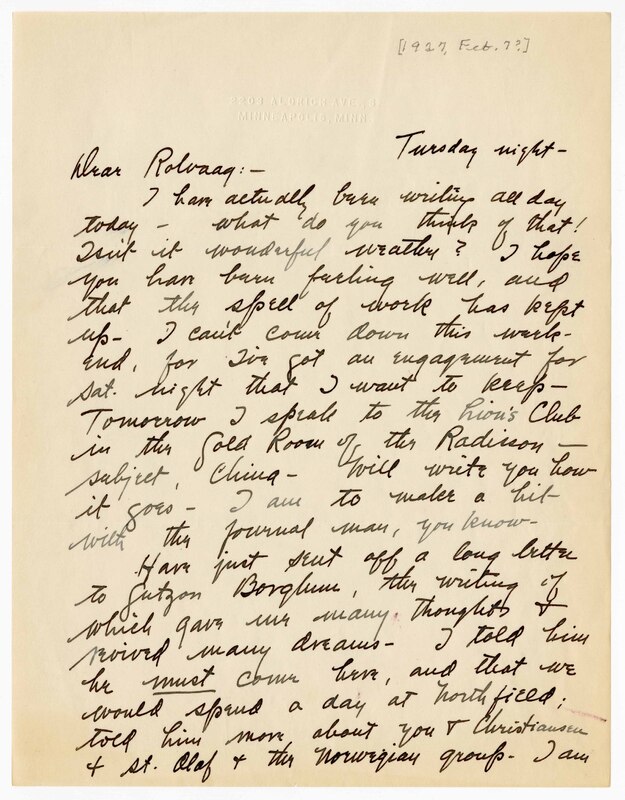 [1927, Feb. 7?]
2203 ALDRICH AVE. S.
MINNEAPOLIS, MINN.
Tuesday night -
Dear Rolvaag: -
I have actually been writing all day
today - what do you think of that!
Isn't it wonderful weather? I hope
you have been feeling well, and
that the spell of work has kept
up - I can't come down this week-
end, for I've got an engagement for
Sat. night that I want to keep -
Tomorrow I speak to the Lion's Club
in the Gold Room of the Radisson -
subject, China - Will write you how
it goes - I am to make a hit
with the Journal man, you know -
Have just sent off a long letter
to Gutzon Borglum, the writing of
which gave me many thoughts &
revived many dreams - I told him
he must come here, and that we
would spend a day at Northfield;
told him more about you & Christiansen
& St. Olaf & the Norwegian group - I am